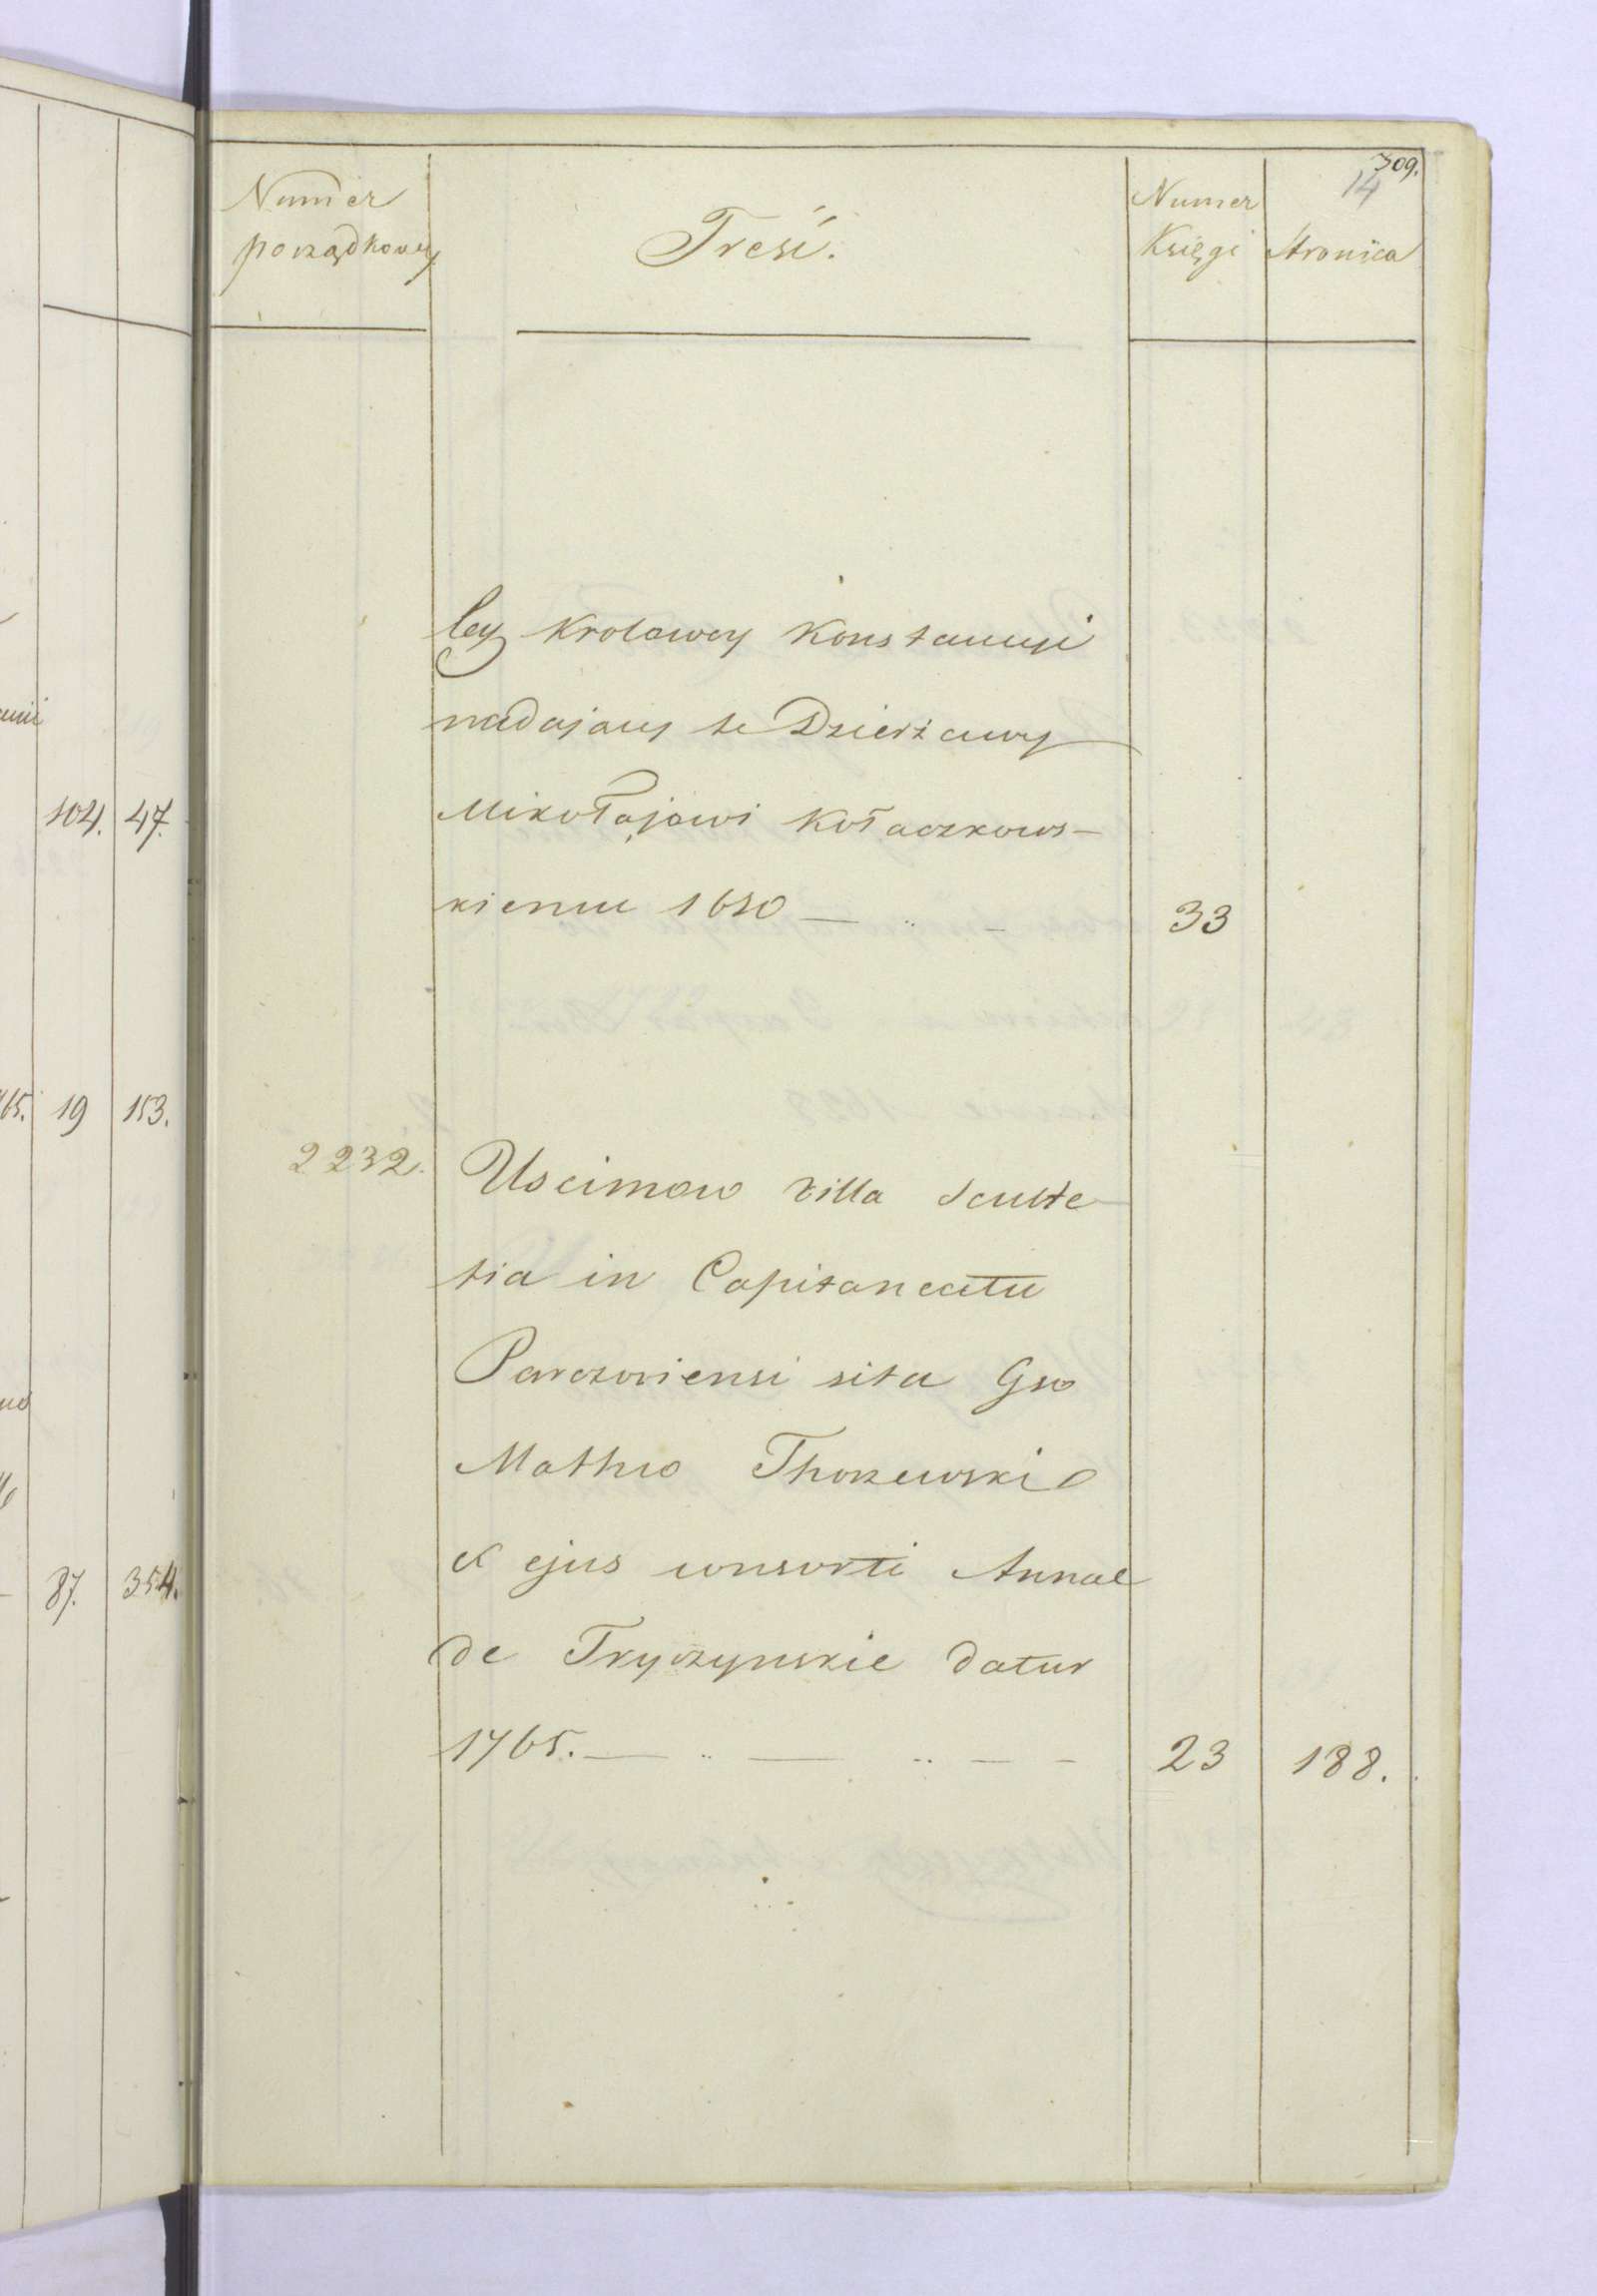 309.
14
Numer porządkowy
Treść.
Numer Księgi
Stronica
cey Krolowey Konstancyi
nadający te Dzierżawy
Mikołajowi Kołaczkows-
kiemu 1610 — .. - 33
2232. Uscimow villa Sculte
tia in Capitaneatu
Parczoviensi sita Gso
Mathio Thorzewski
et ejus consorti Annae
de Tryczynskie datur
1765. — .. — .. — - 23 188.
104. 47.
65. 19 153.
87. 354.